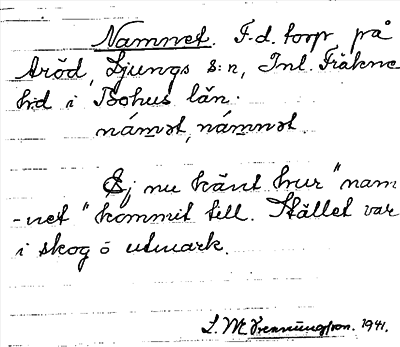 Namnet. F.d. torp på
Aröd, Ljungs s:n, Inl. Fräkne
hrd i Bohus län.
námət, námnət.
Ej nu känt hur "nam
-net" kommit till. Stället var
i skog o utmark.
L. M. Svenungsson. 1941.